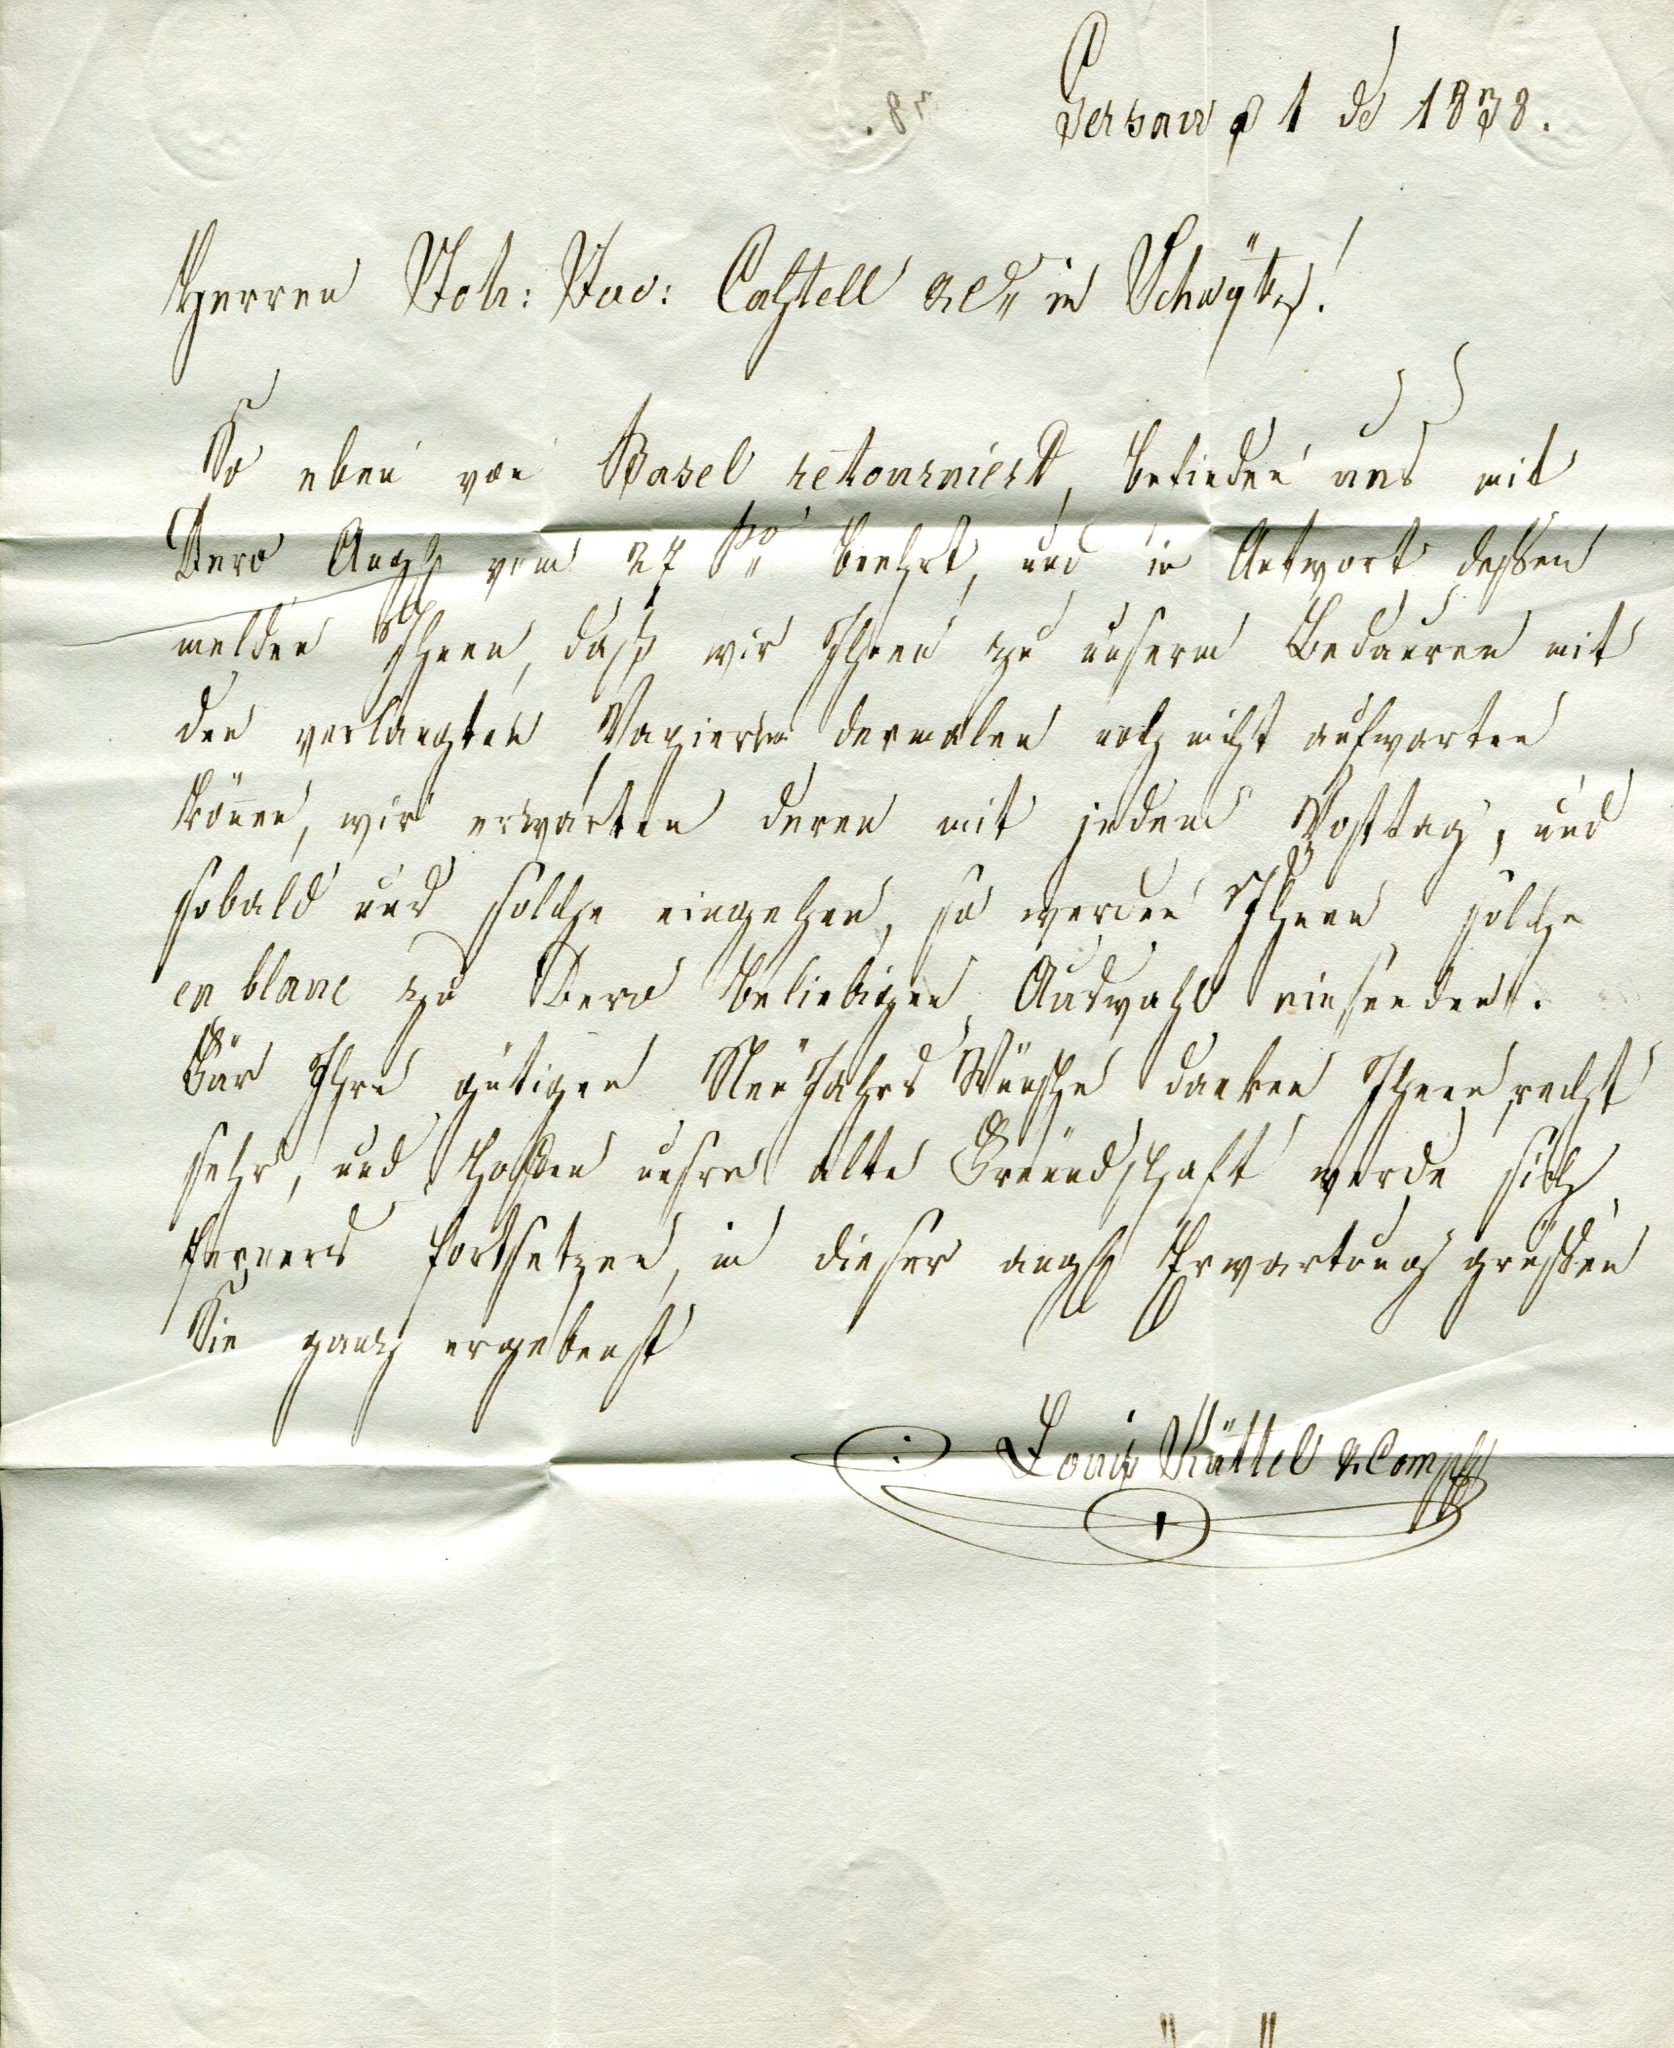 Gersau 1 1838.
Herren Joh: Jac: Castell in Schwÿtz!
So eben von Basel retourniert, befinden uns mit
Dero Angs vom 27 beehrt, und in Antwort dessen
melden Ihnen, daß wir Ihnen zu unserm Bedauren mit
den verlangten Papieren dermalen noch nicht aufwarten
können, wir erwarten deren mit jedem Posttag, und
sobald uns solche eingehen, so werden Ihnen solche
en blanc zu Dero beliebigen Auswahl einsenden.
Für Ihre gütigen Neujahrs Wünsche danken Ihnen recht
sehr, und hoffen unsre alte Freündschaft werde sich
ferners fortsetzen, in dieser angh Erwartung grüßen
Sie ganz ergebenst
Louis Küttel & Comp